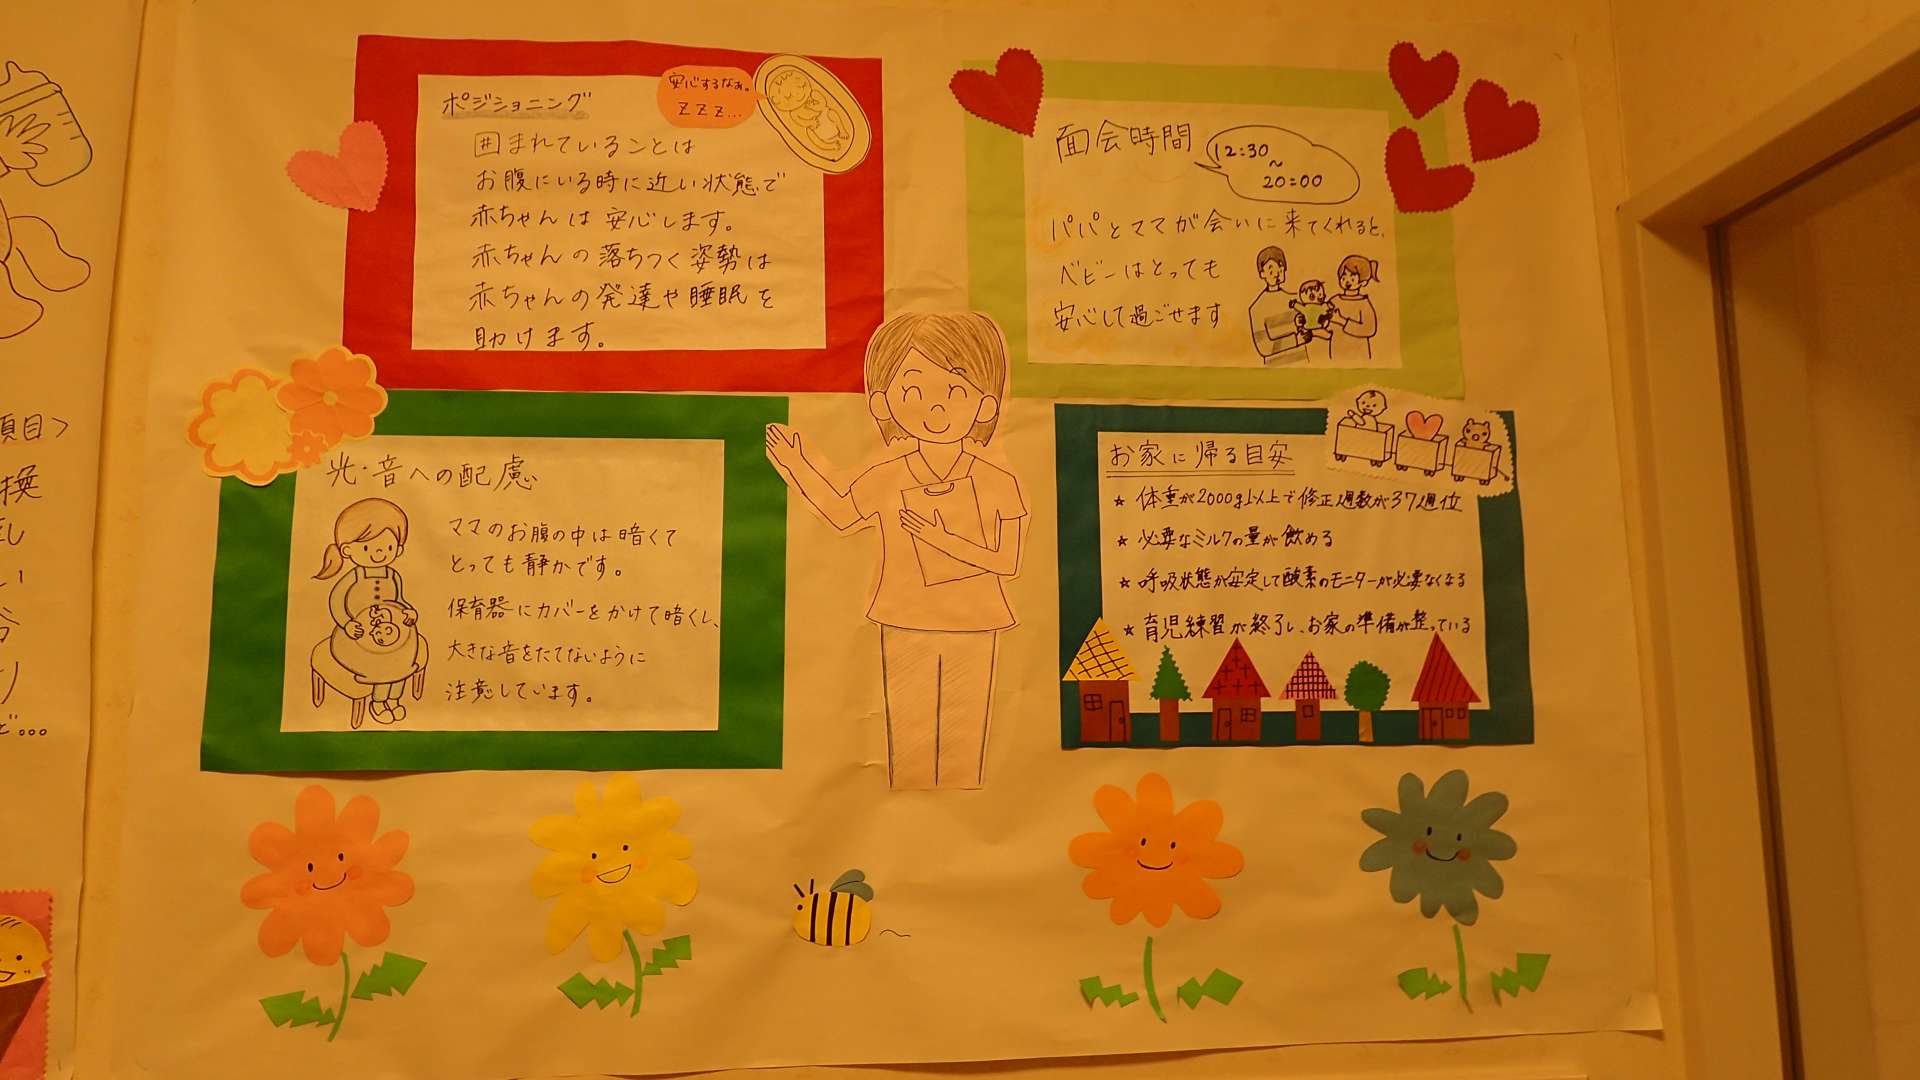 ポジショニング
安心するなぁ。
ZZZ...
囲まれていることは
お腹にいる時に近い状態で
赤ちゃんは安心します。
赤ちゃんの落ちつく姿勢は
赤ちゃんの発達や睡眠を
助けます。
面会時間
12:30
~
20:00
パパとママが会いに来てくれると、
ベビーはとっても
安心して過ごせます
光・音への配慮
ママのお腹の中は暗くて
とっても静かです。
保育器にカバーをかけて暗くし、
大きな音をたてないように
注意しています。
お家に帰る目安
★ 体重が2000g以上で修正週数が37週位
★ 必要なミルクの量が飲める
★ 呼吸状態が安定して酸素のモニターが必要なくなる
★ 育児練習が終了し、お家の準備が整っている
項目>
換
い
り
ど...